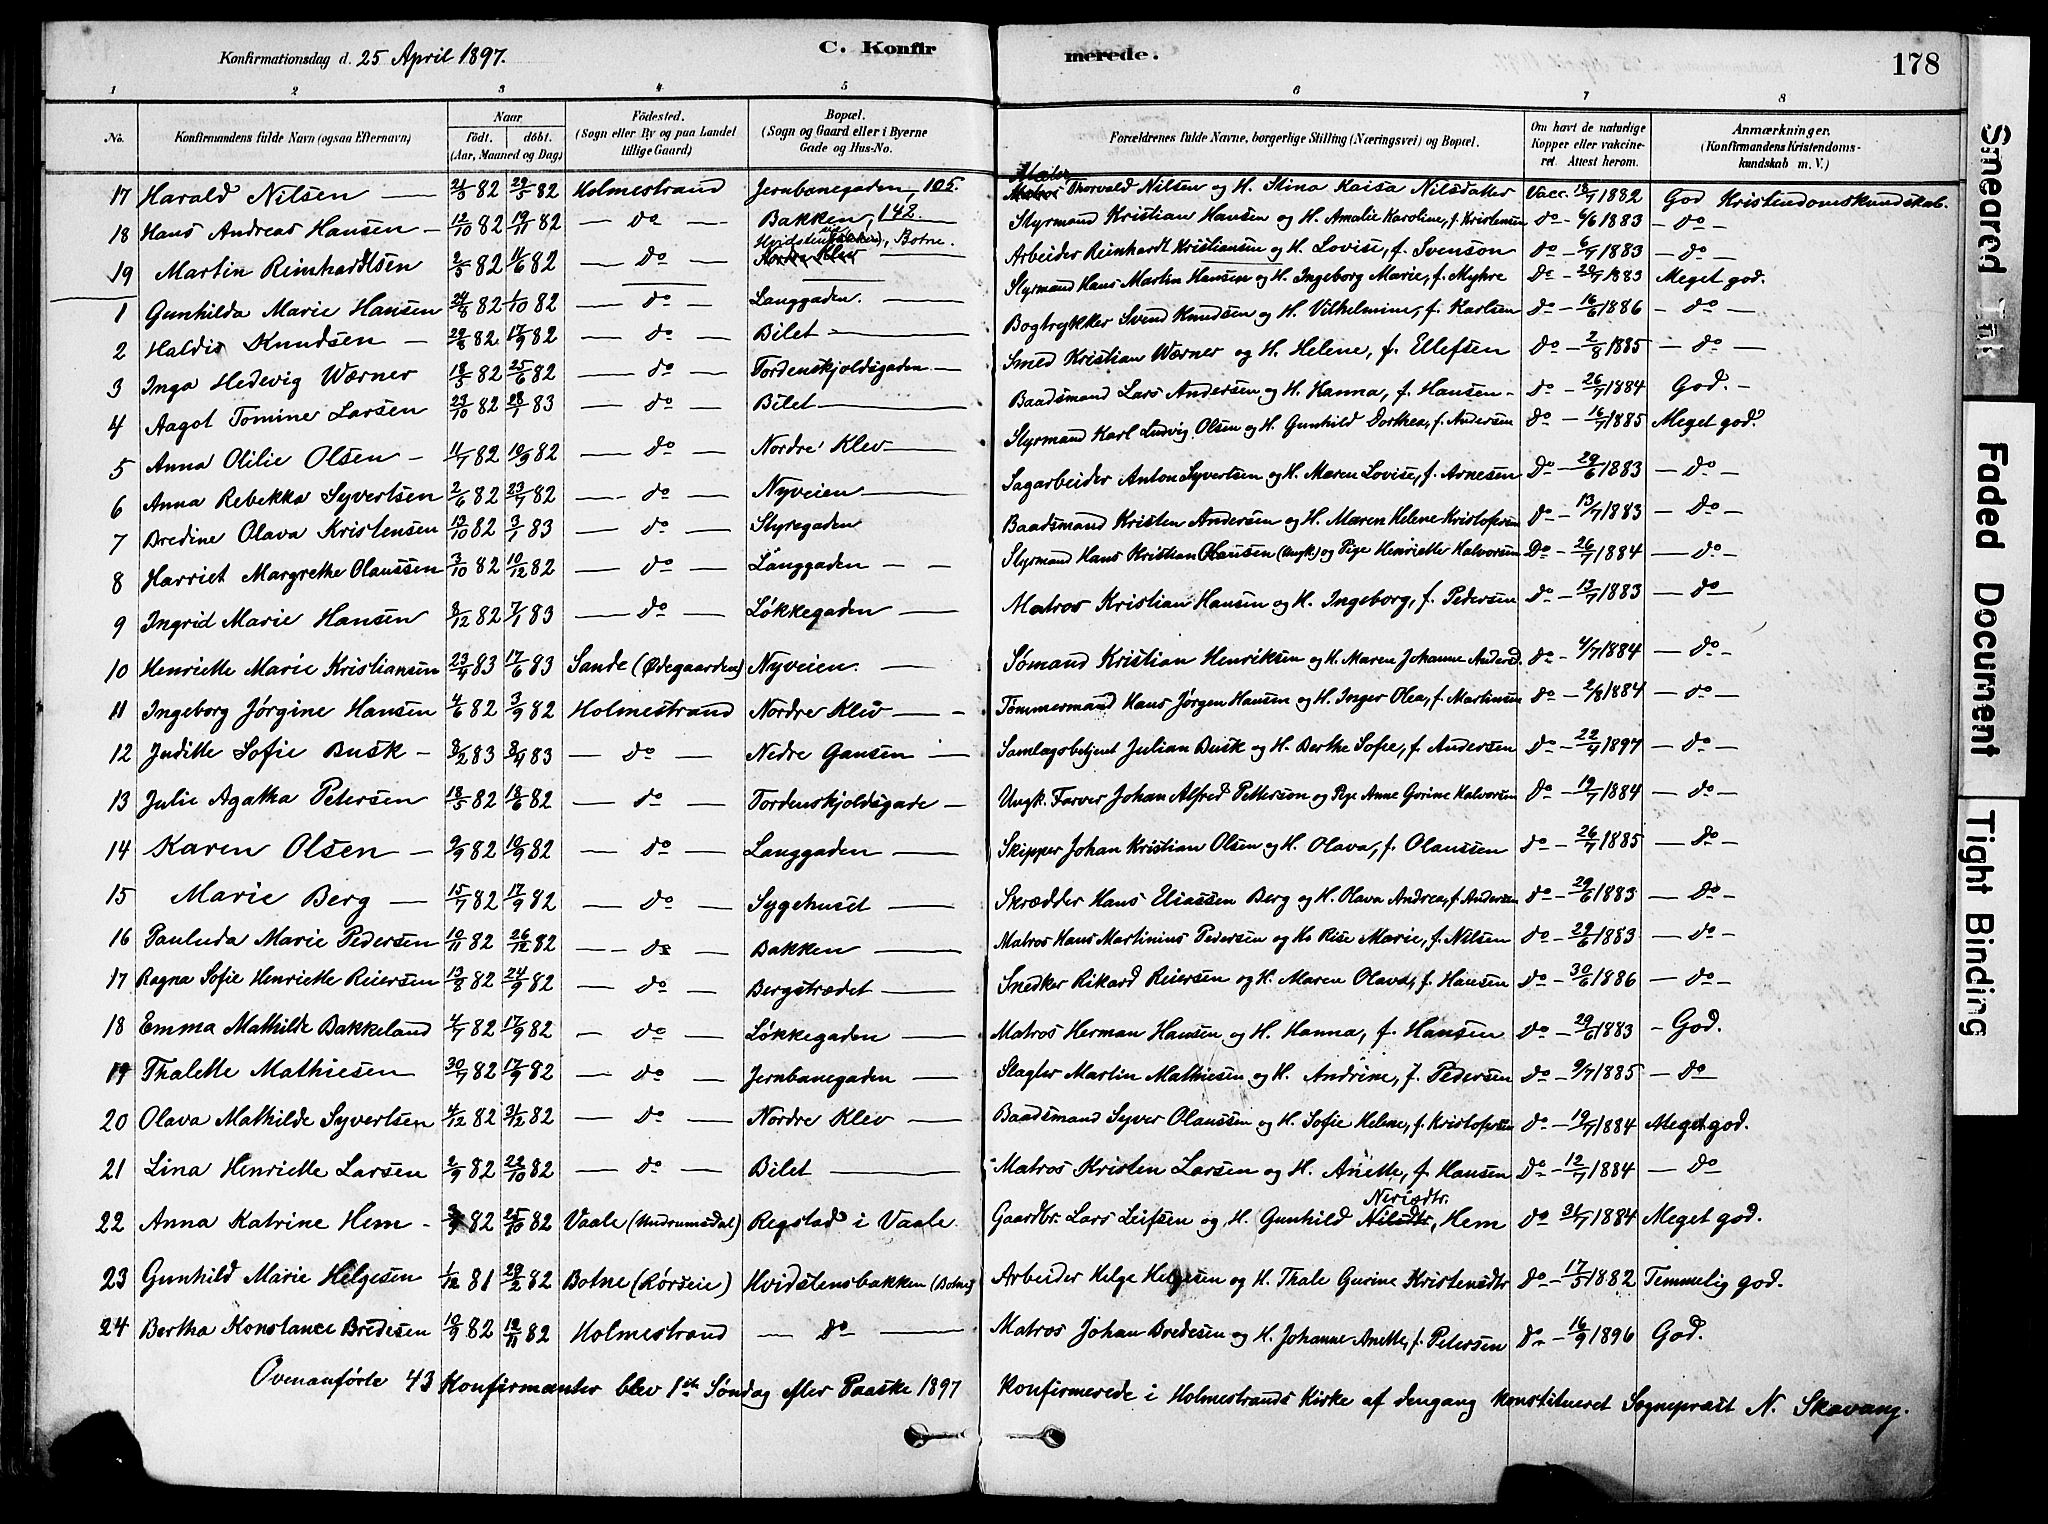 Konfirmationsdag d. 25 April 1897.
C. Konfirmerede.
178
1 2 3 4 5 6 7 8
No. Konfirmandens fulde Navn (ogsaa Efternavn) Naar Födt. döbt. (Aar, Maaned og Dag) Födested. (Sogn eller By og paa Landet tillige Gaard) Bopæl. (Sogn og Gaard eller i Byerne Gade og Hus-No. Forældrenes fulde Navne, borgerlige Stilling (Næringsvei) og Bopæl. Om havt de naturlige Kopper eller vakcineret. Attest herom. Anmærkninger. (Konfirmandens Kristendomskundskab m. V.)
17 Harald Nilsen — 21/3 82 29/5 82 Holmestrand Jernbanegaden 105. Maler Thorvald Nilsen og H. Stina Kaisa Nilsdatter Vacc. 18/7 1882 God Kristendomskundskab.
18 Hans Andreas Hansen — 12/10 82 19/11 82 — do — Bakken, 142 Styrmand Kristian Hansen og H. Amalie Karoline, f. Kristensen do — 6/6 1883 — do —
19 Martin Reinhardtsen 2/5 82 11/6 82 — do — Hvidstensbakken, Botne. Arbeider Reinhardt Kristiansen og H. Lovise, f. Svenson do — 6/7 1883 — do —
1 Gunhilda Marie Hansen 24/8 82 1/10 82 — do — Langgaden. — Styrmand Hans Martin Hansen og H. Ingeborg Marie, f. Myhre do — 20/7 1883 Meget god.
2 Haldis Knudsen — 29/8 82 17/9 82 — do — Bilet — Bogtrykker Svend Knudsen og H. Vilhelmine, f. Karlsen do — 16/6 1886 — do —
3 Inga Hedevig Wærner 18/5 82 25/6 82 — do — Tordenskjoldsgaden — Smed Kristian Wærner og H. Helene, f. Ellefsen do — 2/8 1885 — do —
4 Aagot Tomine Larsen 23/10 82 28/1 83 — do — Bilet — Baadsmand Lars Andersen og H. Hanna, f. Hansen — do — 26/7 1884 God. —
5 Anna Otilie Olsen — 11/7 82 10/9 82 — do — Nordre Klev — Styrmand Karl Ludvig Olsen og H. Gunhild Dorthea, f. Andersen do — 16/7 1885 Meget god.
6 Anna Rebekka Syvertsen 2/6 82 23/7 82 — do — Nyveien — Sagarbeider Anton Syvertsen og H. Maren Lovise, f. Arnesen do — 29/6 1883 — do —
7 Bredine Olava Kristensen 13/10 82 3/1 83 — do — Styregaden Baadsmand Kristen Andersen og H. Maren Helene Kristofersen do — 13/7 1883 — do —
8 Harriet Margrethe Olaussen 3/10 82 10/12 82 — do — Langgaden — — Styrmand Hans Kristian Olausen (Ungk) og Pige Henriette Halvorsen Do — 26/7 1884 — do —
9 Ingrid Marie Hansen 8/12 82 7/1 83 — do — Løkkegaden — Matros Kristian Hansen og H. Ingeborg, f. Pedersen do — 13/7 1883 — do —
10 Henriette Marie Kristiansen 23/4 83 17/6 83 Sande (Ødegaarden) Nyveien. — Sømand Kristian Henriksen og H. Maren Johanne Andersd. do — 4/7 1884 — do —
11 Ingeborg Jørgine Hansen 4/6 82 3/9 82 Holmestrand Nordre Klev — Tømmermand Hans Jørgen Hansen og H. Inger Olea, f. Martinsen do — 2/8 1884 — do —
12 Juditte Sofie Busk — 8/2 83 8/4 83 — do — Nedre Gausen — Samlagsbetjent Julian Busk og H. Berthe Sofie, f. Andersen do — 22/4 1897 — do —
13 Julie Agatha Petersen 18/5 82 18/6 82 — do — Tordenskjoldsgade — Ungk. Farver Johan Alfred Petterson og Pige Anne Gurine Halvorsen do — 19/7 1884 — do —
14 Karen Olsen — 9/9 82 10/9 82 — do — Langgaden — Skipper Johan Kristian Olsen og H. Olava, f. Olaussen do — 26/7 1885 — do —
15 Marie Berg — 15/7 82 17/9 82 — do — Sygehuset — Skrædder Hans Eliassen Berg og H. Olava Andrea, f. Andersen do — 29/6 1883 — do —
16 Pauluda Marie Pedersen 10/11 82 26/12 82 — do — Bakken — Matros Hans Martinius Pedersen og H. Rise Marie, f. Nilsen do — 29/6 1883 — do —
17 Ragna Sofie Henriette Reiersen 13/8 82 24/9 82 — do — Bergstrædet — Snedker Rikard Reiersen og H. Maren Olava, f. Hansen do — 30/6 1886 — do —
18 Emma Mathilde Bakkeland 4/7 82 17/9 82 — do — Løkkegaden — Matros Herman Hansen og H. Hanna, f. Hansen do — 29/6 1883 — God.
19 Thalette Mathiesen 30/7 82 17/9 82 — do — Jernbanegaden — Slagter Martin Mathiesen og H. Andrine, f. Pedersen do — 9/7 1885 — do
20 Olava Mathilde Syvertsen 4/12 82 31/12 82 — do — Nordre Klev — Baadsmand Syver Olaussen og H. Sofie Helene, f. Kristofersen do — 19/7 1884 Meget god.
21 Lina Henriette Larsen 2/9 82 22/10 82 — do — Bilet — Matros Kristen Larsen og H. Anette, f. Hansen do — 12/7 1884 — do
22 Anna Katrine Hem — 82 25/10 82 Vaale (Undrumsdal) Regstad i Vaale Gaardbr. Lars Leifsen og H. Gunhild Nilsdtr, Hem do — 31/7 1884 Meget god.
23 Gunhild Marie Helgesen 1/12 81 29/2 82 Botne (Rørseie) Hvidstensbakken (Botne) Arbeider Helge Helgesen og H. Thale Gurine Kristensdtr do — 17/5 1882 Temmelig god.
24 Bertha Konstance Bredesen 10/9 82 12/11 82 Holmestrand — do — Matros Johan Bredesen og H. Johanne Anette, f. Petersen do — 16/9 1896 God.
Ovenanførte 43 Konfirmanter blev 1ste Søndag efter Paaske 1897 Konfirmerede i Holmestrands Kirke af dengang konstitueret Sognepræst N. Skavang.
Smeared Ink
Faded Document
Tight Binding